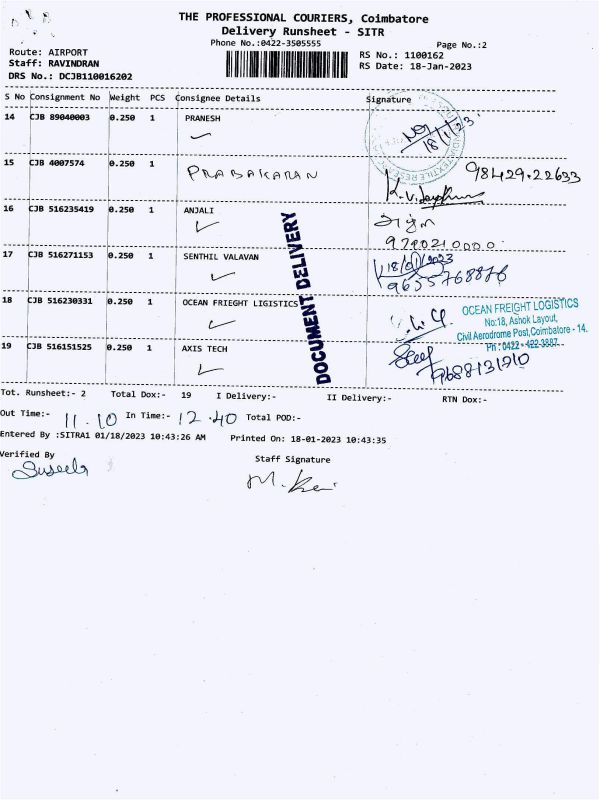 THE PROFESSIONAL COURIERS, Coimbatore
Delivery Runsheet - SITR
Phone No.:0422-3505555
Page No.:2
Route: AIRPORT
RS No.: 1100162
Staff: RAVINDRAN
RS Date: 18-Jan-2023
DRS No.: DCJB110016202
S No Consignment No Weight PCS Consignee Details Signature
14 CJB 89040003 0.250 1 PRANESH
18/1/23
15 CJB 4007574 0.250 1 PRABAKARAN
98429.22633
16 CJB 516235419 0.250 1 ANJALI
9790210000
17 CJB 516271153 0.250 1 SENTHIL VALAVAN
18/01/2023
9655768876
18 CJB 516230331 0.250 1 OCEAN FRIEGHT LIGISTICS
OCEAN FREIGHT LOGISTICS
No:18, Ashok Layout,
Civil Aerodrome Post, Coimbatore - 14.
Ph : 0422 - 422 3887
19 CJB 516151525 0.250 1 AXIS TECH
9688131710
DOCUMENT DELIVERY
Tot. Runsheet:- 2 Total Dox:- 19 I Delivery:- II Delivery:- RTN Dox:-
Out Time:- 11.10 In Time:- 12.40 Total POD:-
Entered By :SITRA1 01/18/2023 10:43:26 AM Printed On: 18-01-2023 10:43:35
Verified By
Staff Signature